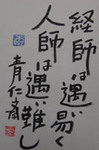 経師は遇い易く
人師は遇い難し
青仁斎